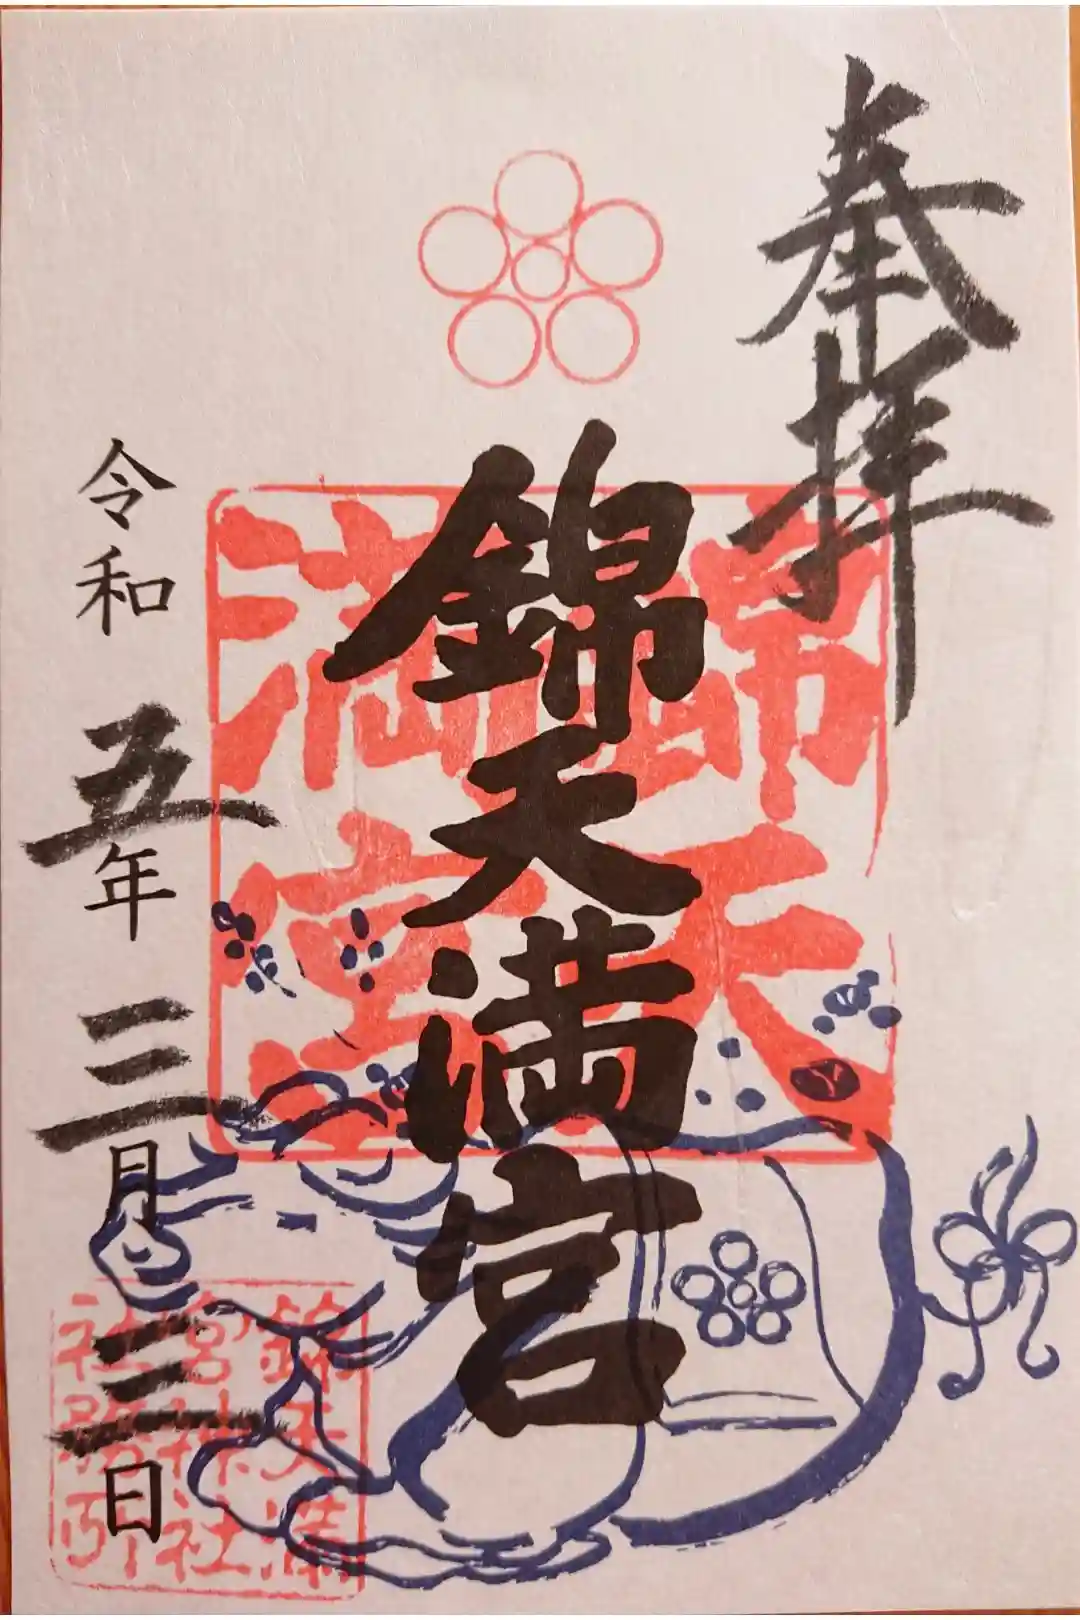 奉拝
錦天満宮
令和五年三月三日
錦天
満宮
錦天満
宮神社
社務所